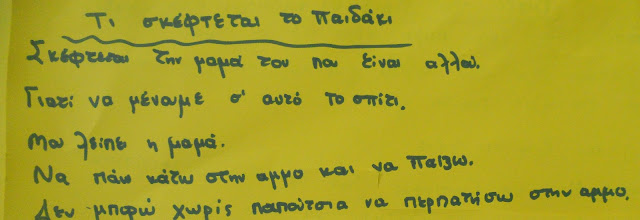 Τι σκέφτεται το παιδάκι
Σκέφτεται την μαμά του που είναι αλλού.
Γιατί να μέναμε σ' αυτό το σπίτι.
Μου λείπει η μαμά.
Να πάω κάτω στην αμμο και να παίξω.
Δεν μπορώ χωρίς παπούτσια να περπατήσω στην αμμο.